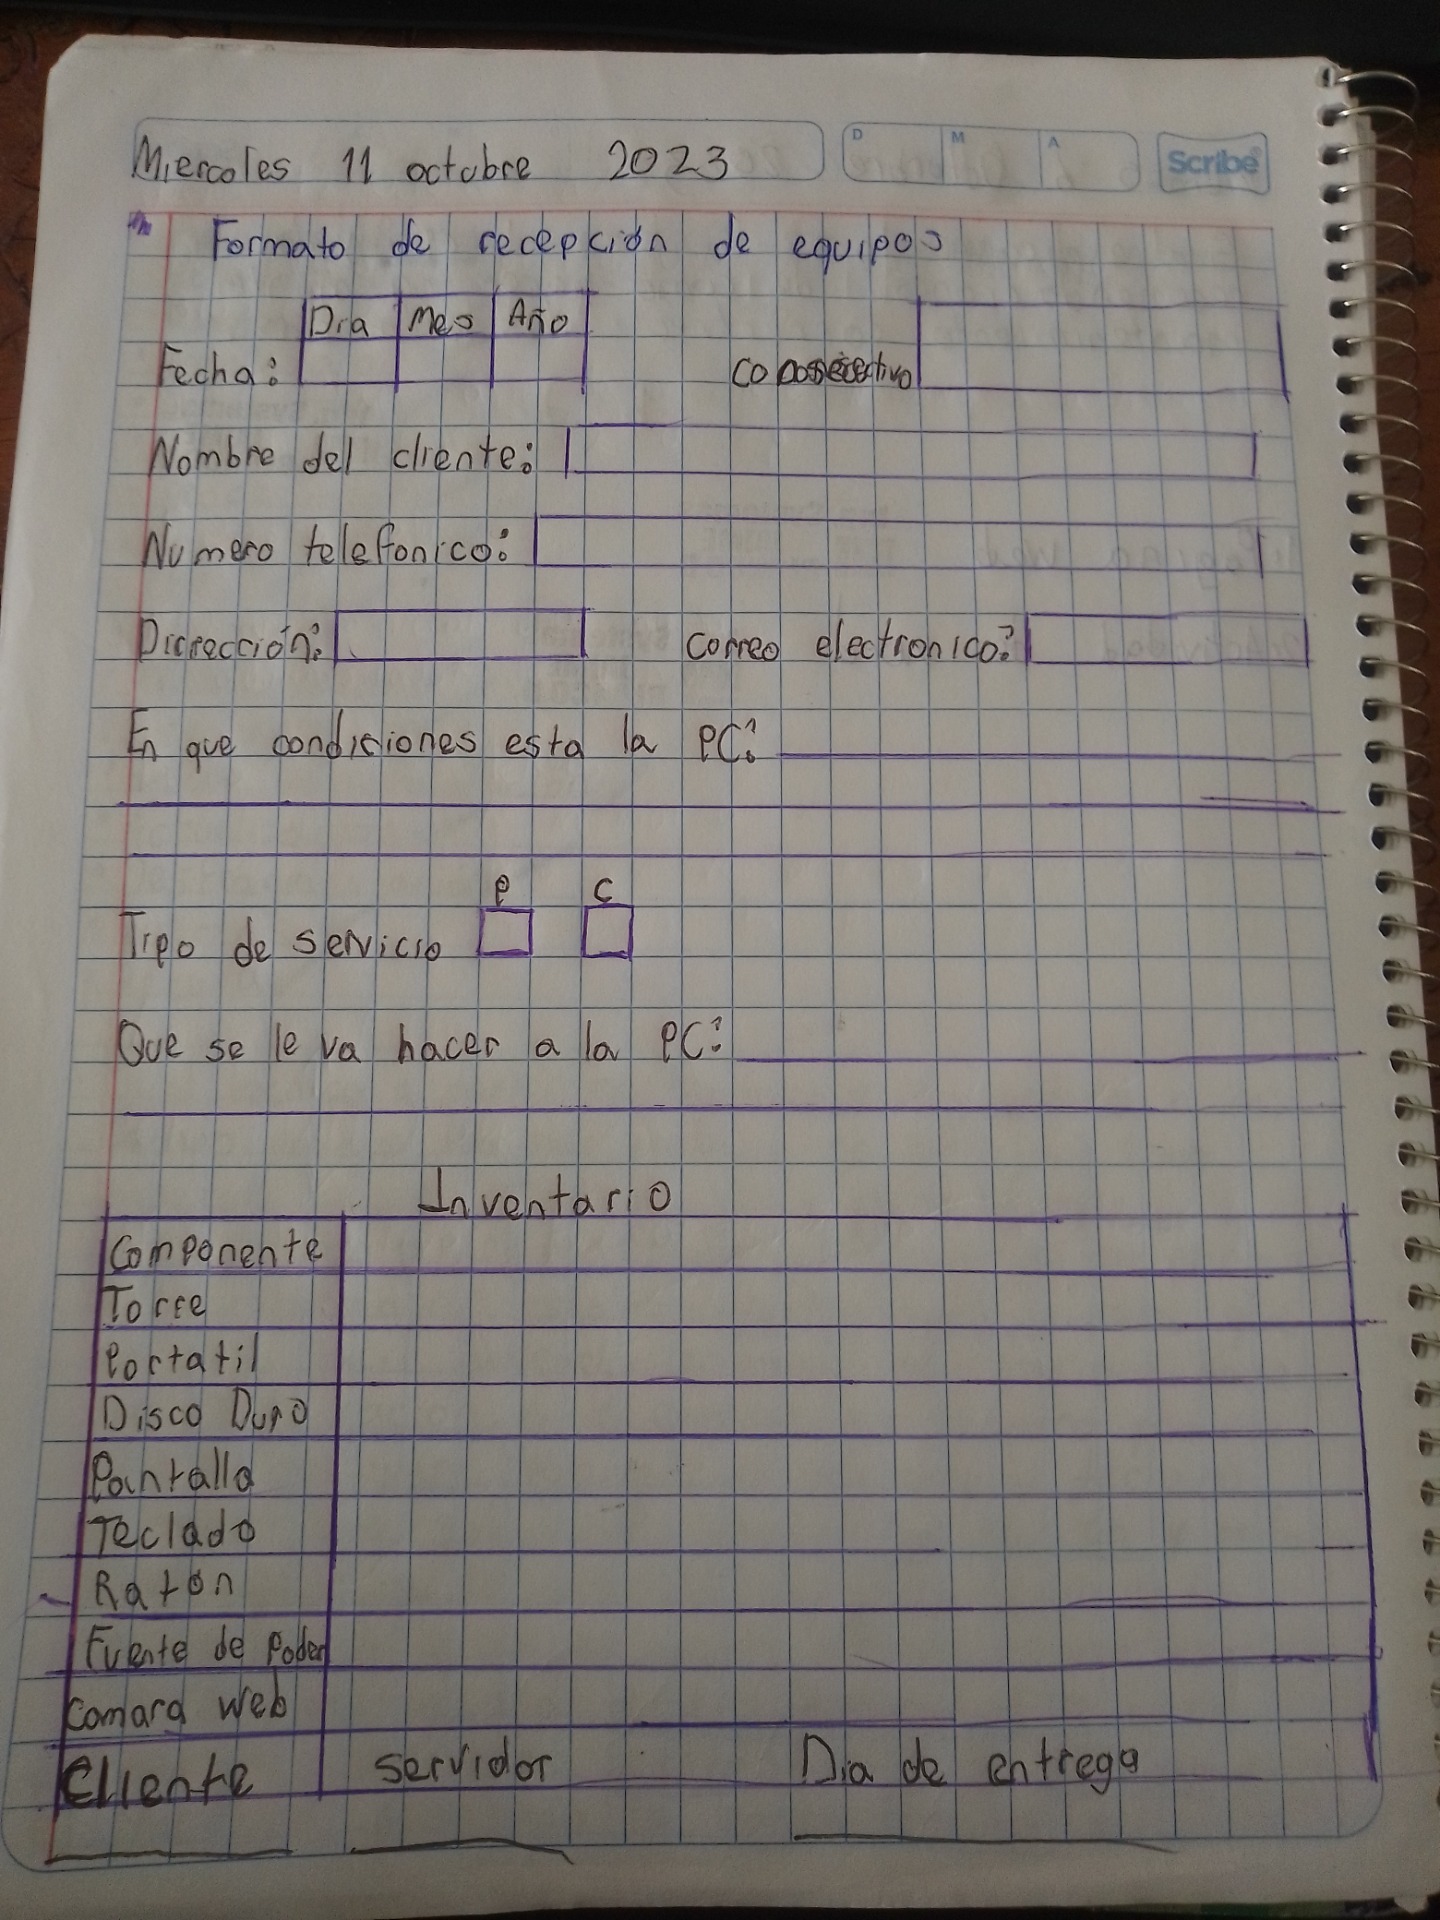 Miercoles 11 octubre 2023
D M A
Scribe
Formato de recepción de equipos
Dia Mes Año
Fecha:
Nombre del cliente:
Numero telefonico:
Dirrección: correo electronico:
En que condiciones esta la PC:
P C
Tipo de servicio
Que se le va hacer a la PC:
Inventario
Componente
Torre
Portatil
Disco Duro
Pantalla
Teclado
Ratón
Fuente de Poder
Camara web
Cliente servidor Dia de entrega